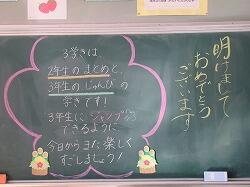 明けまして
おめでとう
ございます
3学きは
2年生のまとめと、
3年生のじゅんびの
学きです！
3年生にジャンプ
できるように
今日からまた楽しく
すごしましょう！